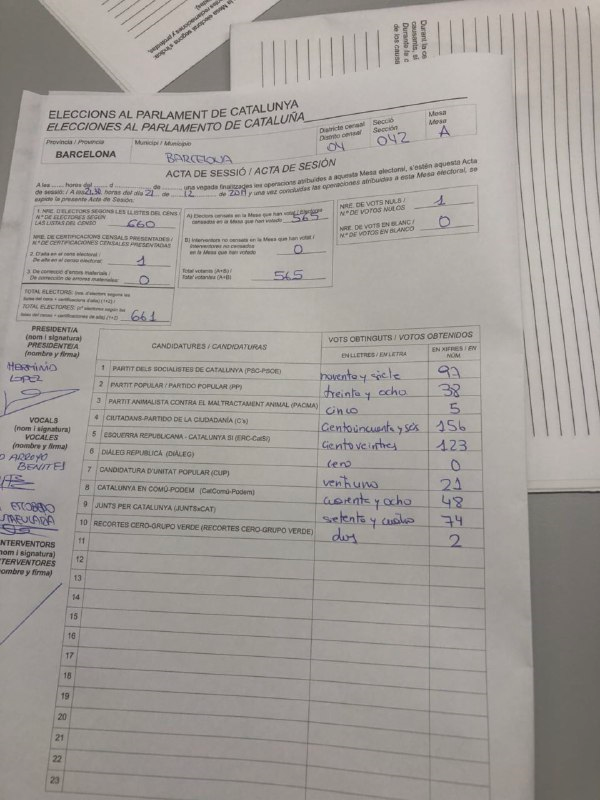 ELECCIONS AL PARLAMENT DE CATALUNYA
ELECCIONES AL PARLAMENTO DE CATALUÑA
Província / Provincia
BARCELONA
Municipi / Municipio
BARCELONA
Districte censal
Distrito censal
04
Secció
Sección
042
Mesa
Mesa
A
ACTA DE SESSIÓ / ACTA DE SESIÓN
A les hores del d de una vegada finalitzades les operacions atribuïdes a aquesta Mesa electoral, s'estén aquesta Acta
de sessió: / A las 21,30 horas del día 21 de 12 de 2017 y una vez concluidas las operaciones atribuidas a esta Mesa electoral, se
expide la presente Acta de Sesión:
1. NRE. D'ELECTORS SEGONS LES LLISTES DEL CENS /
N.º DE ELECTORES SEGÚN
LAS LISTAS DEL CENSO 660
NRE. DE CERTIFICACIONS CENSALS PRESENTADES /
N.º DE CERTIFICACIONES CENSALES PRESENTADAS
2. D'alta en el cens electoral /
De alta en el censo electoral 1
3. De correcció d'errors materials /
De corrección de errores materiales: 0
TOTAL ELECTORS: (nre. d'electors segons les
llistes del cens + certificacions d'alta) (1+2) /
TOTAL ELECTORES: (n.º electores según las
listas del censo + certificaciones de alta) (1+2) 661
A) Electors censats en la Mesa que han votat / Electores
censados en la Mesa que han votado 565
B) Interventors no censats en la Mesa que han votat /
Interventores no censados
en la Mesa que han votado 0
Total votants (A+B) /
Total votantes (A+B) 565
NRE. DE VOTS NULS /
N.º DE VOTOS NULOS 1
NRE. DE VOTS EN BLANC /
N.º DE VOTOS EN BLANCO 0
PRESIDENT/A
(nom i signatura)
PRESIDENTE/A
(nombre y firma)
HERMINIO
LOPEZ
VOCALS
(nom i signatura)
VOCALES
(nombre y firma)
ARROYO
INTERVENTORS
(nom i signatura)
CANDIDATURES / CANDIDATURAS
VOTS OBTINGUTS / VOTOS OBTENIDOS
EN LLETRES / EN LETRA
EN XIFRES / EN NÚM.
1 PARTIT DELS SOCIALISTES DE CATALUNYA (PSC-PSOE) noventa y siete 97
2 PARTIT POPULAR / PARTIDO POPULAR (PP) treinta y ocho 38
3 PARTIT ANIMALISTA CONTRA EL MALTRACTAMENT ANIMAL (PACMA) cinco 5
4 CIUTADANS-PARTIDO DE LA CIUDADANÍA (C's) Cientocincuenta y seis 156
5 ESQUERRA REPUBLICANA - CATALUNYA SÍ (ERC-CatSí) Cientoveintres 123
6 DIÀLEG REPUBLICÀ (DIÀLEG) cero 0
7 CANDIDATURA D'UNITAT POPULAR (CUP) ventiuno 21
8 CATALUNYA EN COMÚ-PODEM (CatComú-Podem) cuarenta y ocho 48
9 JUNTS PER CATALUNYA (JUNTSxCAT) setenta y cuatro 74
10 RECORTES CERO-GRUPO VERDE (RECORTES CERO-GRUPO VERDE) dos 2
11
12
13
14
15
16
17
18
19
20
21
22
23